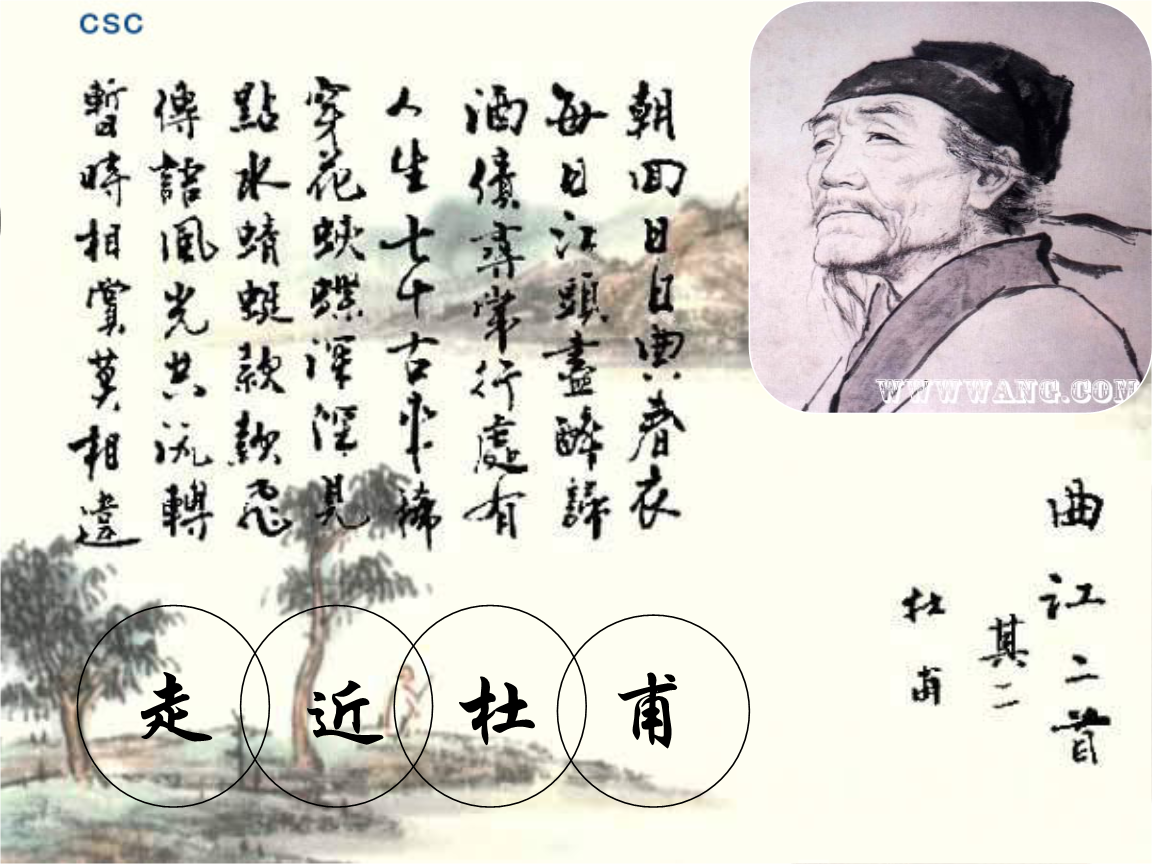 CSC
曲江二首
其二
杜甫
朝回日日典春衣
每日江頭盡醉歸
酒債尋常行處有
人生七十古來稀
穿花蛺蝶深深見
點水蜻蜓款款飛
傳語風光共流轉
暫時相賞莫相違
走近杜甫
WWWWANG.COM